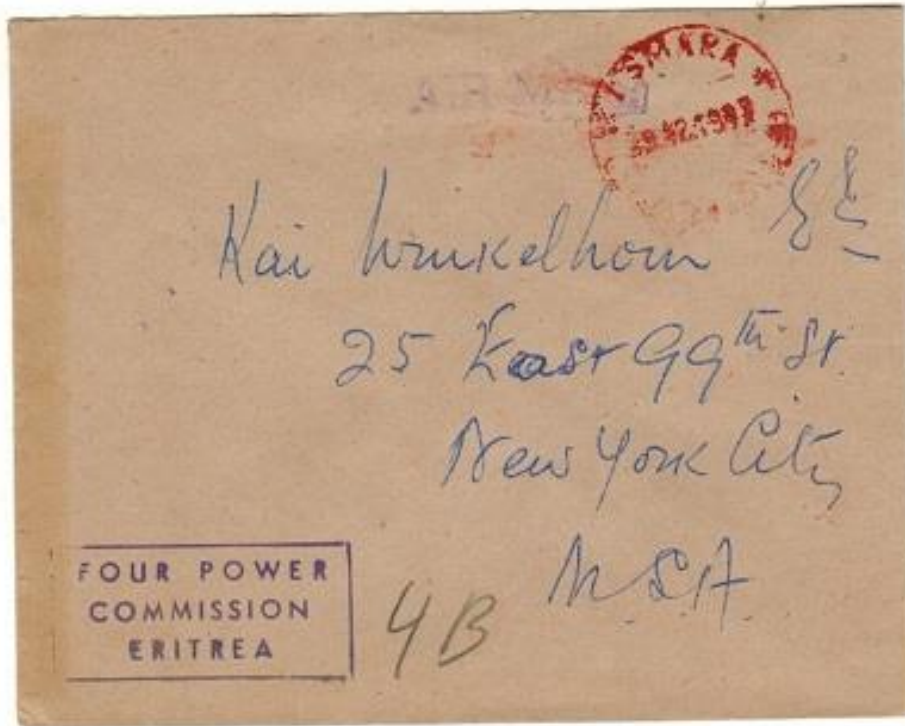 ASMARA *
Kai Winkelhorn
25 East 99th St.
New York City
USA
FOUR POWER
COMMISSION
ERITREA
4B